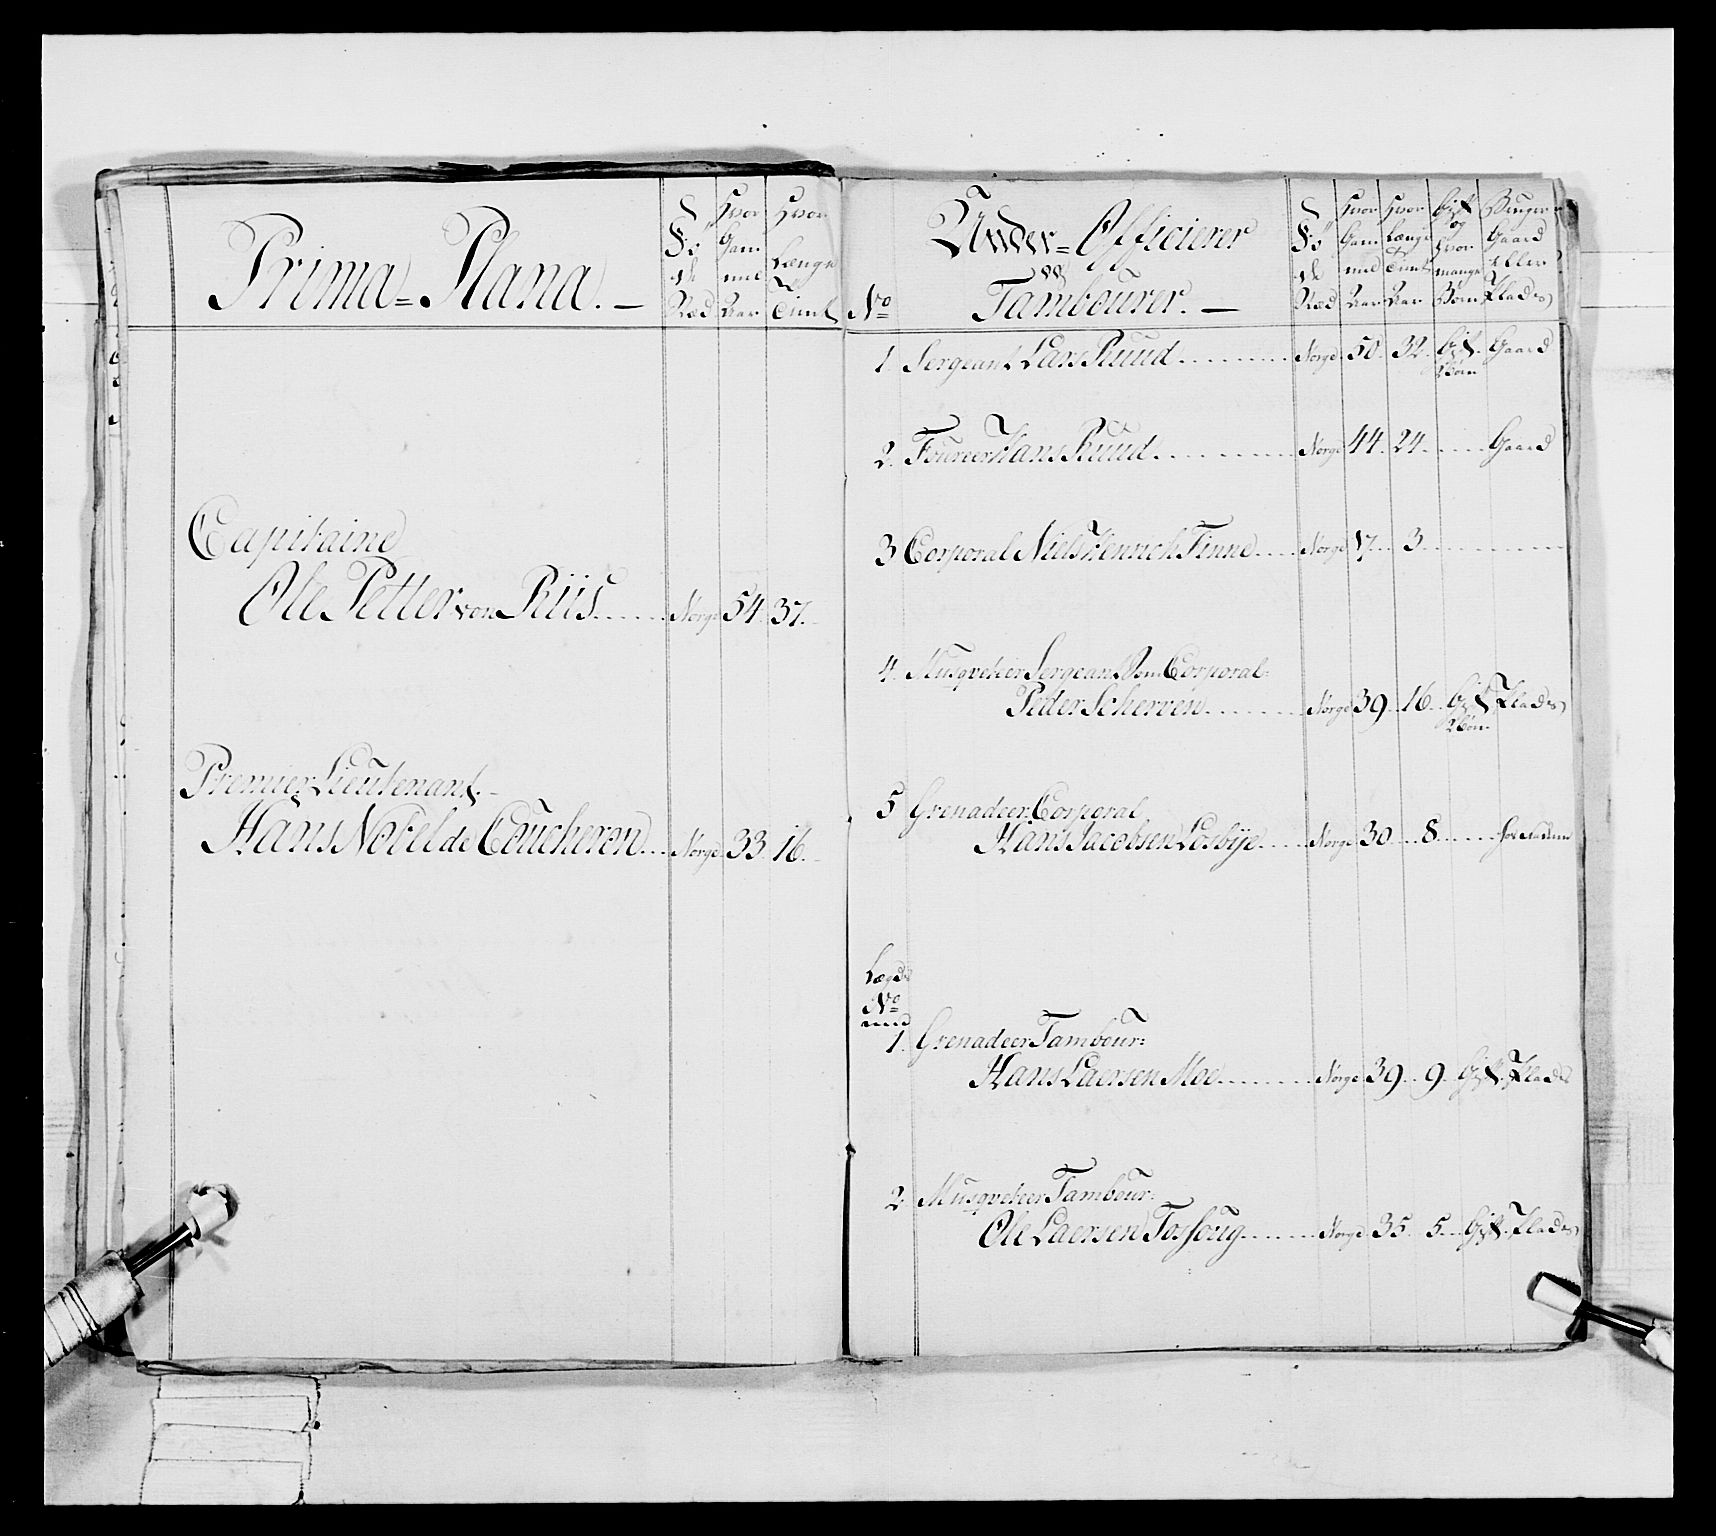 Prima-Plana.
Fø
de
Sted
Hvor
Gam
mel
Aar
Hvor
Længe
Tient
Capitaine
Ole Petter von Riis Norge 54. 37.
Premier Lieutenant
Hans Nobel de Coucheron Norge 33 16.
Under-Officierer
Tambourer.
No
Fø
de
Sted
Hvor
Gam
mel
Aar
Hvor
Længe
Tient
Aar
Gift
og
hvor
mange
Børn
Gaard
Eller
Plads
1. Sergeant Lars Ruud Norge 50. 32. Gift. Gaard
Børn
2. Foureer Hans Ruud Norge 44. 24. Gaard
3 Corporal Niels Henrich Finne Norge 17. 3
4. Musqveteer Sergeant Som Corporal
Peder Scherven Norge 39. 16. Gift Plads
Børn
5 Grenadeer Corporal
Hans Jacobsen Losbye Norge 30 8
Lægds
No
1. Grenadeer Tambour:
Hans Laersen Moe Norge 39 9. Gift. Plads
2. Musqveteer Tambour:
Ole Laersen Fosshoug Norge 35 5 Gift. Plads